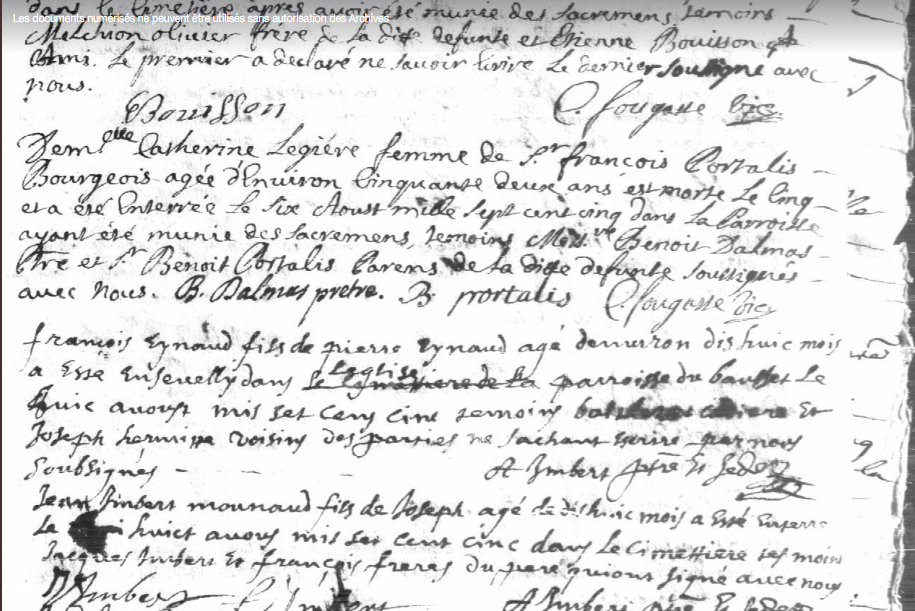 dans le cimetière apres avoir été munie des sacremens temoins
Les documents numérisés ne peuvent être utilisés sans autorisation des Archives
Melchion olivier frere de la dite defunte et Etienne Bouisson
Le premier a declaré ne savoir Ecrire Le dernier soussigné avec
nous.
Bouisson Sougasse Vic
Demlle Catherine Legiére femme de Sr françois Portalis
Bourgeois agée d'Environ Cinquante deux ans est morte Le Cinq
et a été Enterrée Le six Aoust mille sept cent cinq dans la Parroisse
ayant été munie des sacremens, temoins Messire Benoit Dalmas
Ptre et Sr Benoit Portalis Parens de la dite defunte soussignés
avec Nous. B. Dalmas pretre. B. portalis Sougasse Vic
françois Eynaud fills de pierre Eynaud agé denviron dishuic mois
a Esté Ensevelly dans L'eglise le cymettiere de la parroisse du bausset Le
huic avoust mis set cens cinc temoins et
Joseph voisins des parties ne sachant escrire par nous
soubsignés - A Imbert ptre
Jean Imbert mounaud fills de Joseph agé de dishuic mois a Esté Enterre
Le huict avous mis set cent cinc dans Le cimettiere tes moins
Jacques Imbert Et françois freres du pere quiont signé avec nous
Imbert Imbert A Imbert ptre